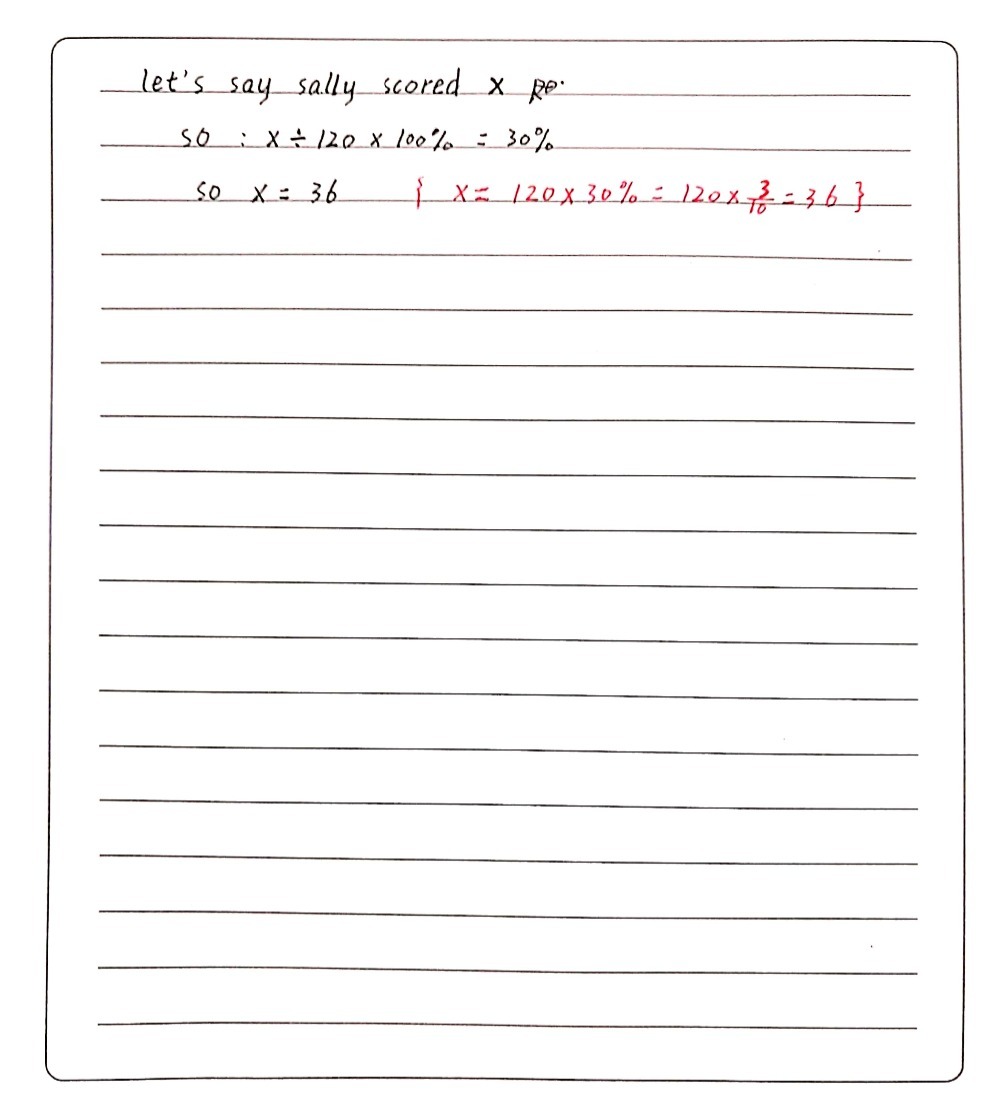 let's say sally scored x
so : x ÷ 120 x 100% = 30%
so x = 36 { x = 120 x 30% = 120 x 3/10 = 36 }